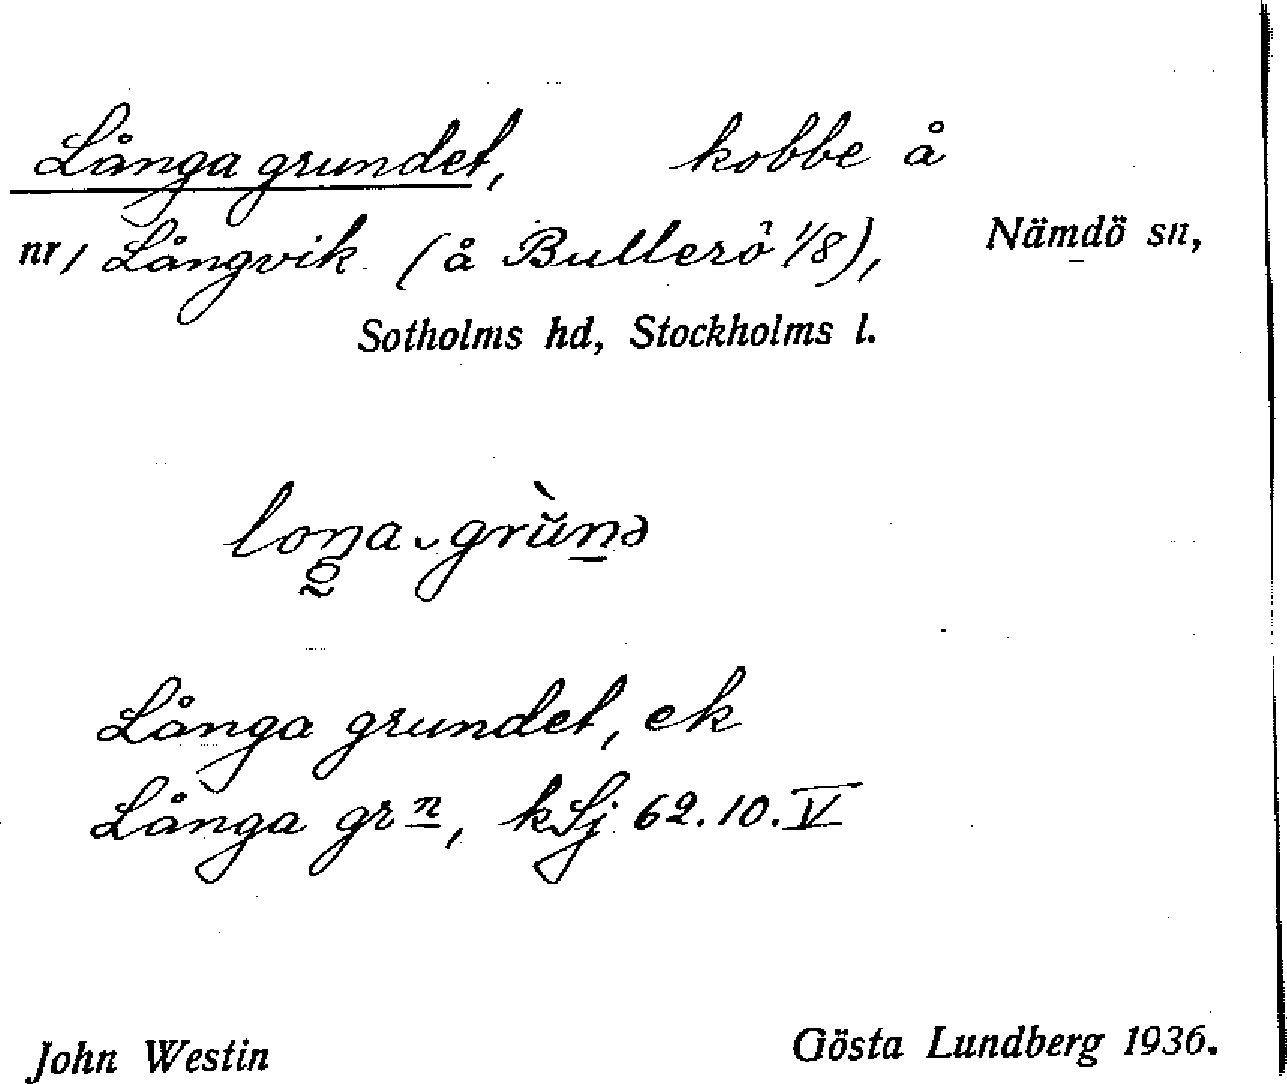 Långa grundet, kobbe å
nr 1 Långvik (å Bullerö 1/8), Nämdö sn,
Sotholms hd, Stockholms l.
Långa grundet, ek
Långa grn, kSj 62.10.V
John Westin Gösta Lundberg 1936.